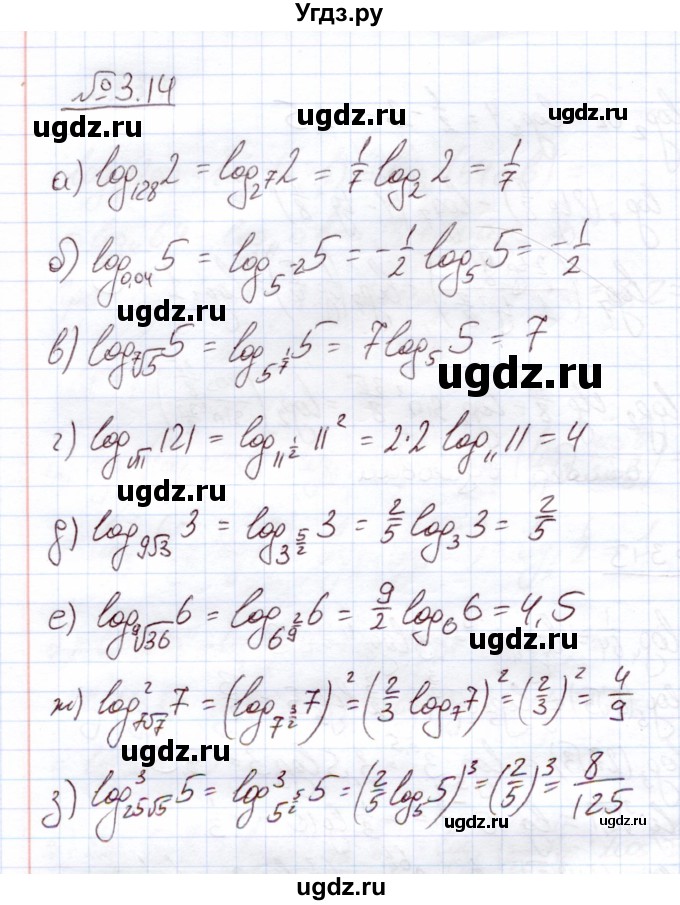 Угдз.ру
№3.14
ugdz.ru
ugdz.ru
ugdz.ru
а) log₁₂₈ 2 = log_{2^7} 2 = 1/7 log₂ 2 = 1/7
б) log_{0,04} 5 = log_{5^{-2}} 5 = -1/2 log₅ 5 = -1/2
ugdz.ru
в) log_{⁷√5} 5 = log_{5^{1/7}} 5 = 7 log₅ 5 = 7
ugdz.ru
г) log_{√11} 121 = log_{11^{1/2}} 11² = 2·2 log₁₁ 11 = 4
ugdz.ru
ugdz.ru
д) log_{9√3} 3 = log_{3^{5/2}} 3 = 2/5 log₃ 3 = 2/5
е) log_{⁹√36} 6 = log_{6^{2/9}} 6 = 9/2 log₆ 6 = 4,5
ugdz.ru
ж) log²_{7√7} 7 = (log_{7^{3/2}} 7)² = (2/3 log₇ 7)² = (2/3)² = 4/9
ugdz.ru
з) log³_{25√5} 5 = log³_{5^{5/2}} 5 = (2/5 log₅ 5)³ = (2/5)³ = 8/125
ugdz.ru
ugdz.ru
ugdz.ru